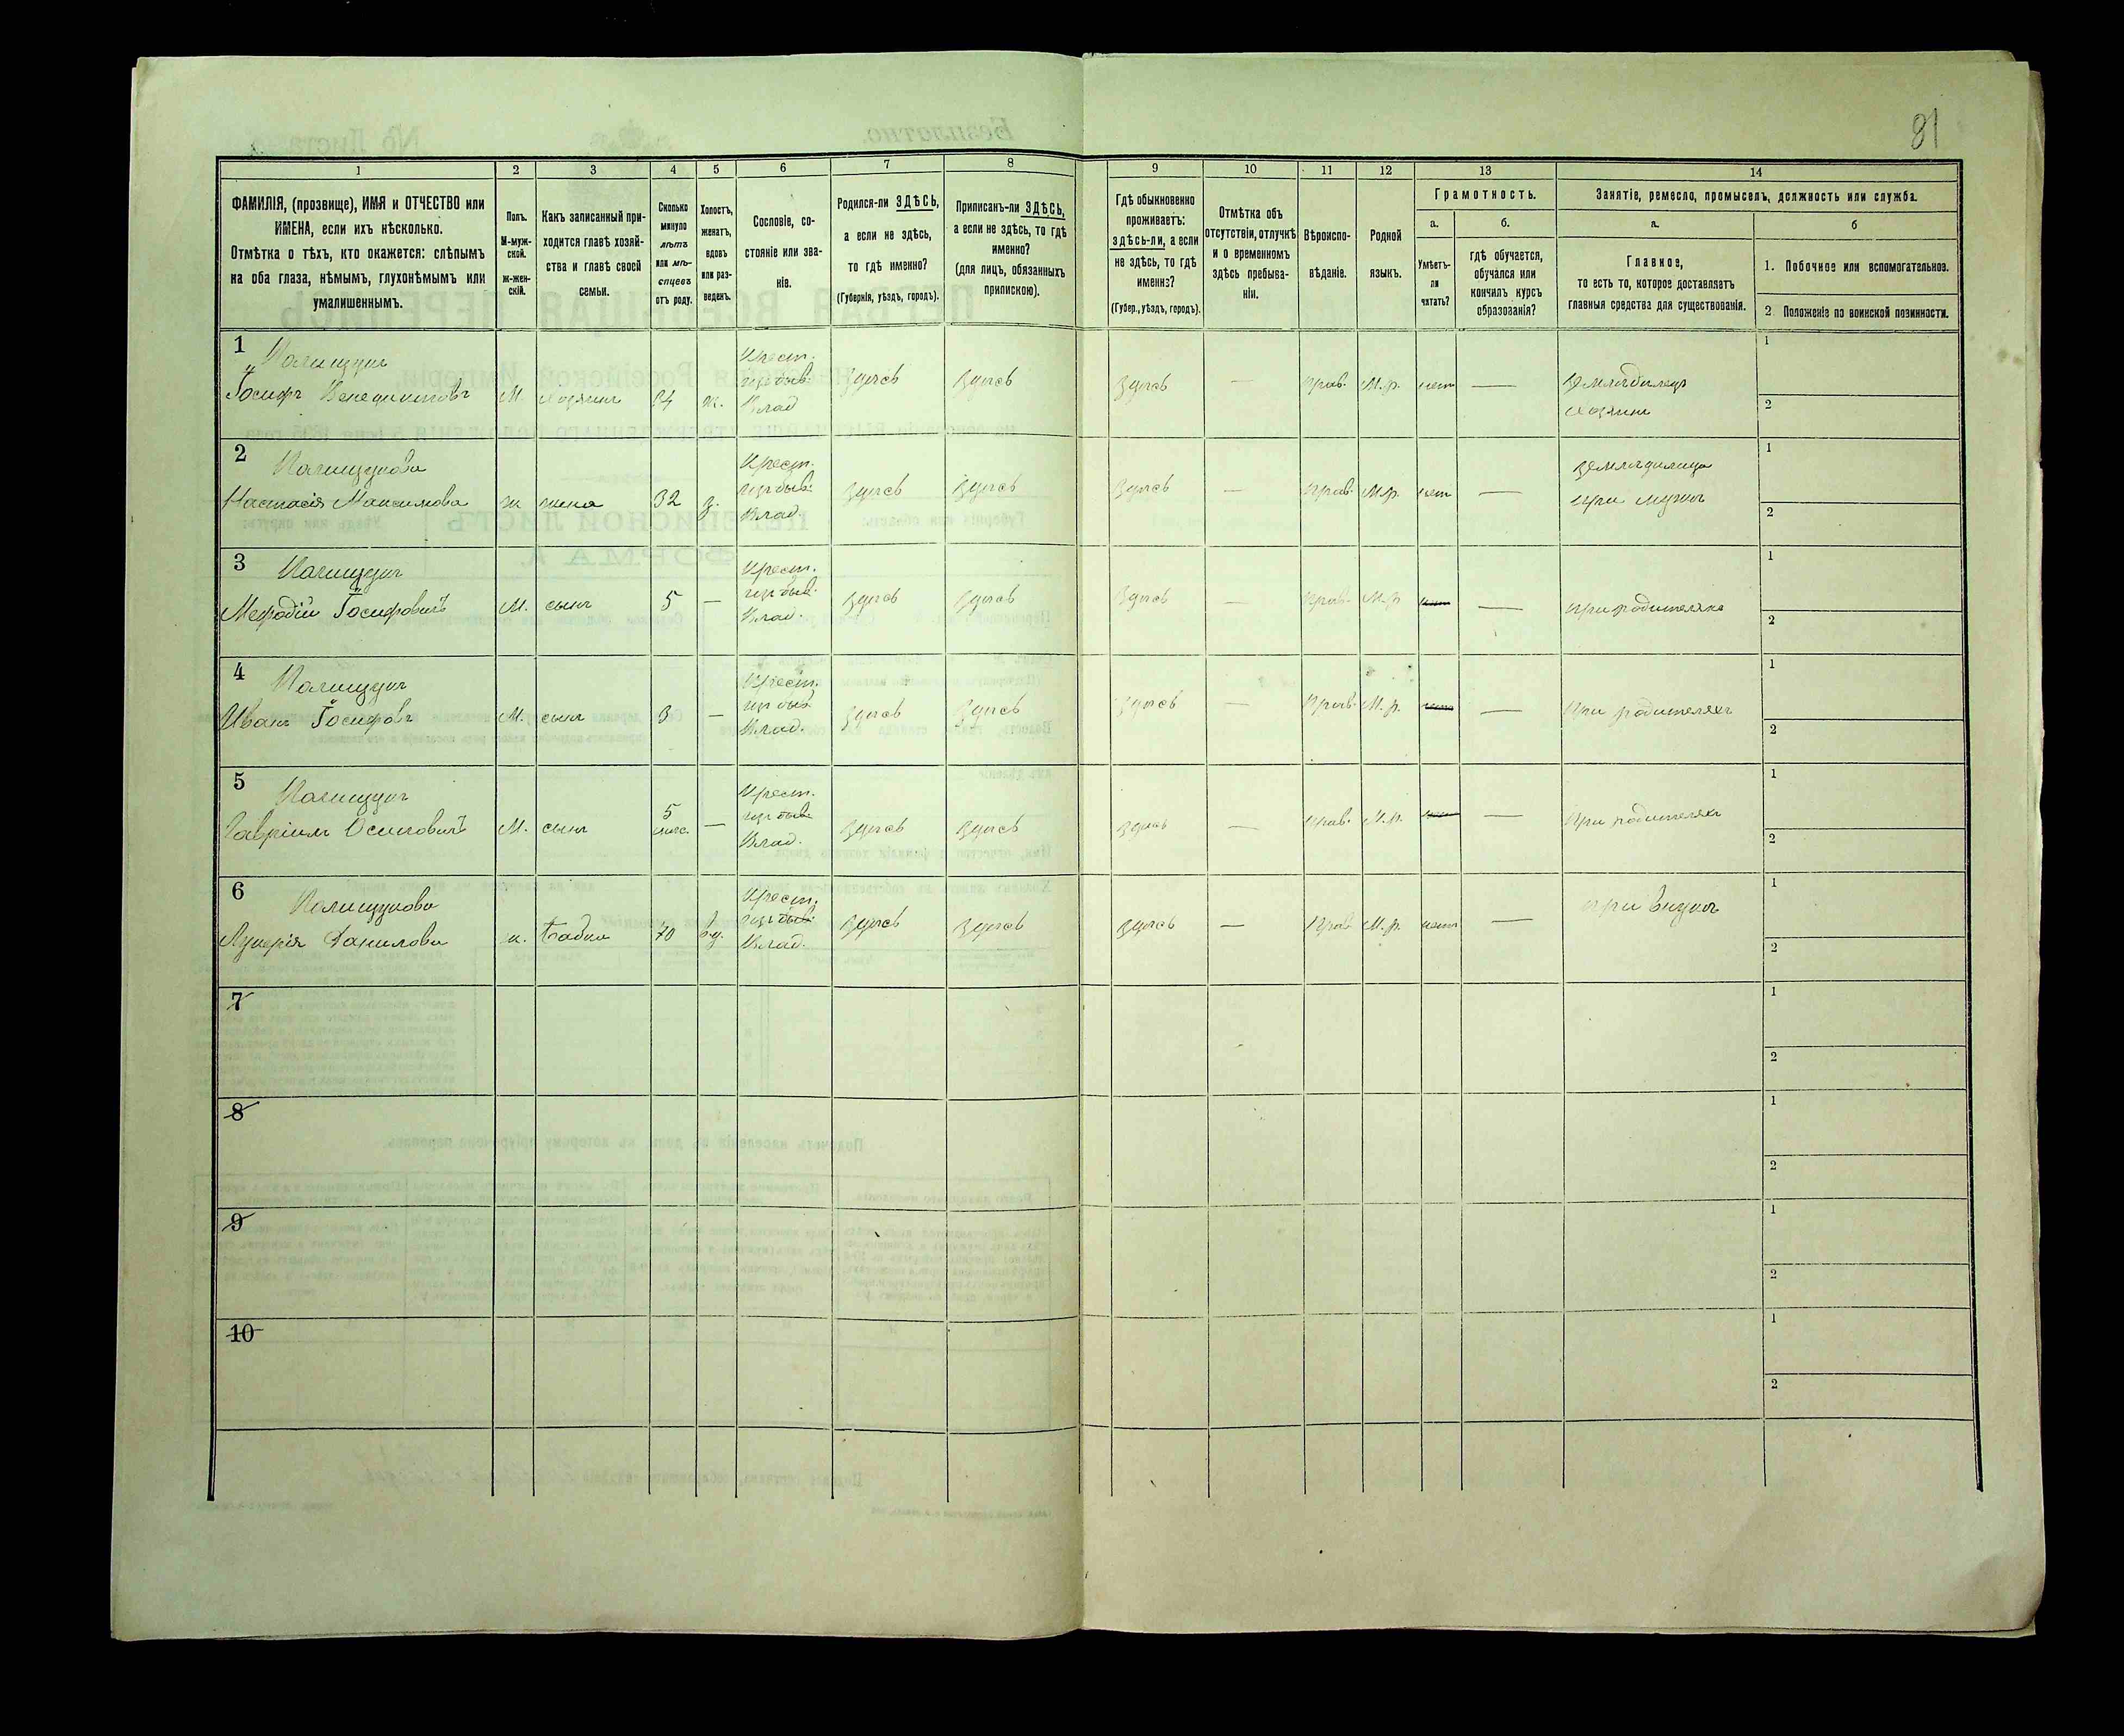 81
1
2
3
4
5
6
7
8
9
10
11
12
13
14
ФАМИЛІЯ, (прозвище), ИМЯ и ОТЧЕСТВО или
ИМЕНА, если ихъ нѣсколько.
Отмѣтка о тѣхъ, кто окажется: слѣпымъ
на оба глаза, нѣмымъ, глухонѣмымъ или
умалишеннымъ.
Полъ.
М-муж-
ской.
Ж-жен-
скій.
Какъ записанный при-
ходится главѣ хозяй-
ства и главѣ своей
семьи.
Сколько
минуло
лѣтъ
или мѣ-
сяцевъ
отъ роду.
Холостъ,
женатъ,
вдовъ
или раз-
веденъ.
Сословіе, со-
стояніе или зва-
ніе.
Родился-ли ЗДѢСЬ,
а если не здѣсь,
то гдѣ именно?
(Губернія, уѣздъ, городъ).
Приписанъ-ли ЗДѢСЬ,
а если не здѣсь, то гдѣ
именно?
(для лицъ, обязанныхъ
припискою).
Гдѣ обыкновенно
проживаетъ:
здѣсь-ли, а если
не здѣсь, то гдѣ
именно?
(Губер., уѣздъ, городъ).
Отмѣтка объ
отсутствіи, отлучкѣ
и о временномъ
здѣсь пребыва-
ніи.
Вѣроиспо-
вѣданіе.
Родной
языкъ.
Грамотность.
а.
Умѣетъ-
ли
читать?
б.
гдѣ обучается,
обучался или
кончилъ курсъ
образованія?
Занятіе, ремесло, промыселъ, должность или служба.
а.
Главное,
то есть то, которое доставляетъ
главныя средства для существованія.
б
1. Побочное или вспомогательное.
2. Положеніе по воинской повинности.
1 Полищукъ Крест. 1
Іосифъ Венедиктовъ М. хозяинъ 34 ж. изъ быв. Влад здѣсь здѣсь здѣсь — Прав. М.р. нетъ — Земледѣлецъ
хозяинъ 2
2 Полищукова Крест. Земледѣлица 1
Настасія Максимова ж жена 32 з. изъ быв. Влад. здѣсь здѣсь здѣсь — Прав. М.р. нетъ — при мужѣ
2
3 Полищукъ Крест. 1
Мефодій Іосифовичъ М. сынъ 5 — изъ быв. Влад. здѣсь здѣсь здѣсь — Прав. М.р. нетъ — при родителяхъ
2
4 Полищукъ Крест. 1
Иванъ Іосифовъ М. сынъ 3 — изъ быв. Влад. здѣсь здѣсь здѣсь — Прав. М.р. нетъ — При родителяхъ
2
5 Полищукъ Крест. 1
Гавріилъ Осиповичъ М. сынъ 5 мѣс. — изъ быв. Влад. здѣсь здѣсь здѣсь — Прав. М.р. нетъ — При родителяхъ
2
6 Полищукова Крест. при внукѣ 1
Лукерія Данилова ж. бабка 70 вд. изъ быв. Влад. здѣсь здѣсь здѣсь — Прав. М.р. нетъ —
2
7 1
2
8 1
2
9 1
2
10 1
2